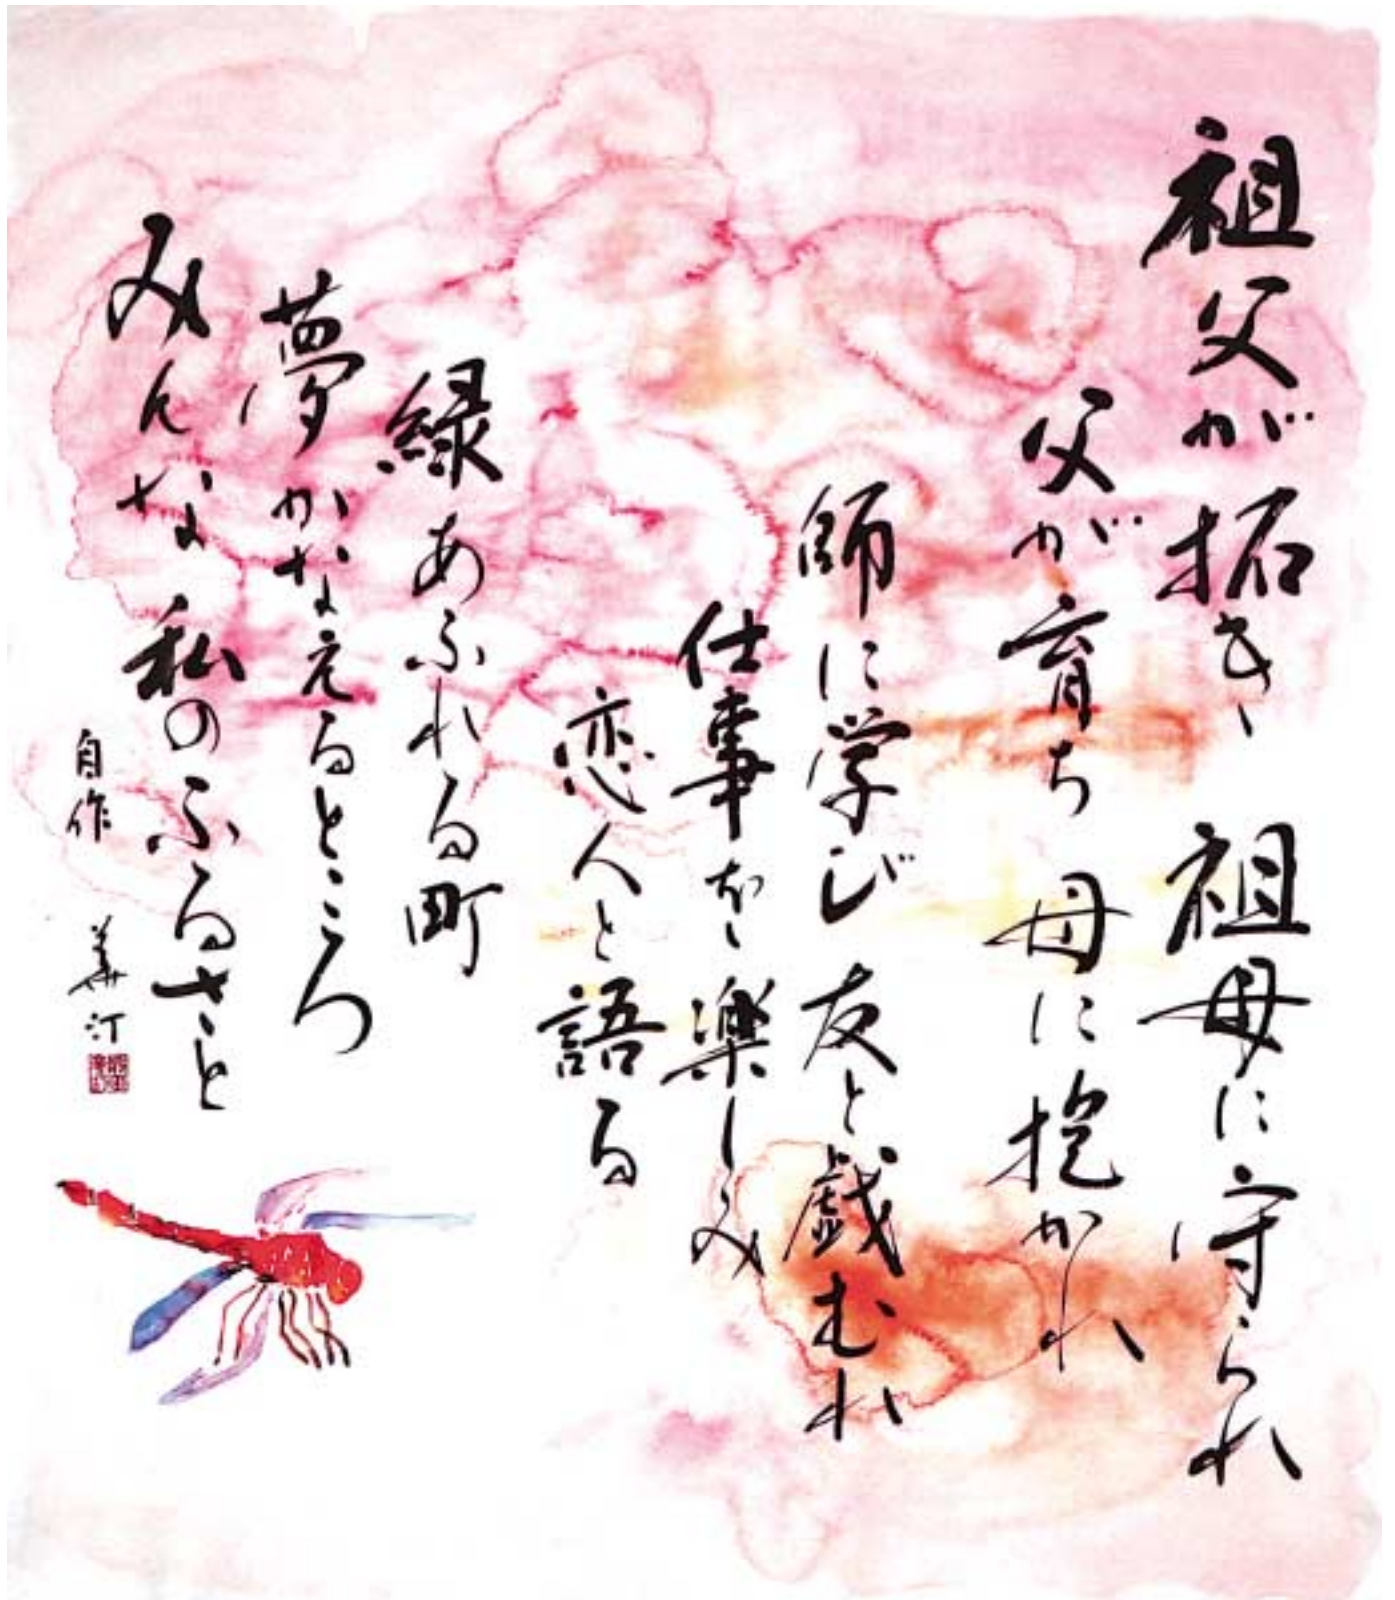 祖父が拓き 祖母に守られ
父が育ち 母に抱かれ
師に学び 友と戯むれ
仕事を楽しみ
恋人と語る
緑あふれる町
夢かなえるところ
みんな私のふるさと
自作 華汀